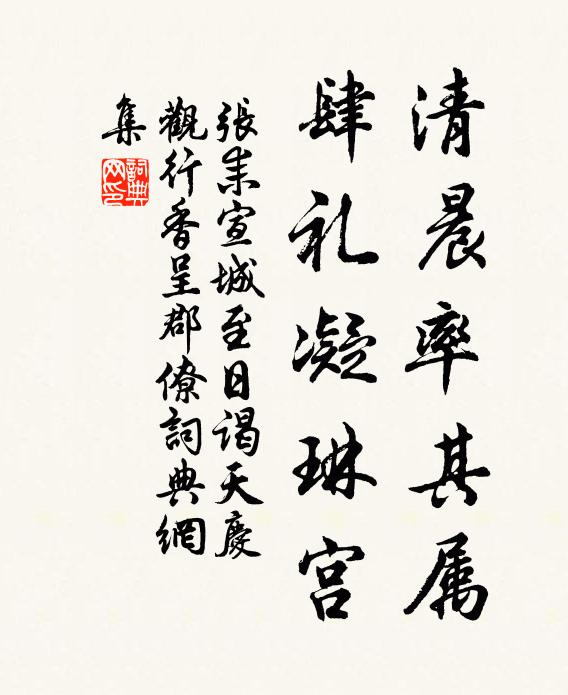 清晨率其属
肆礼凝琳宫
張耒宣城至日谒天慶
觀行香呈郡僚詞典網
集
詞典
网印